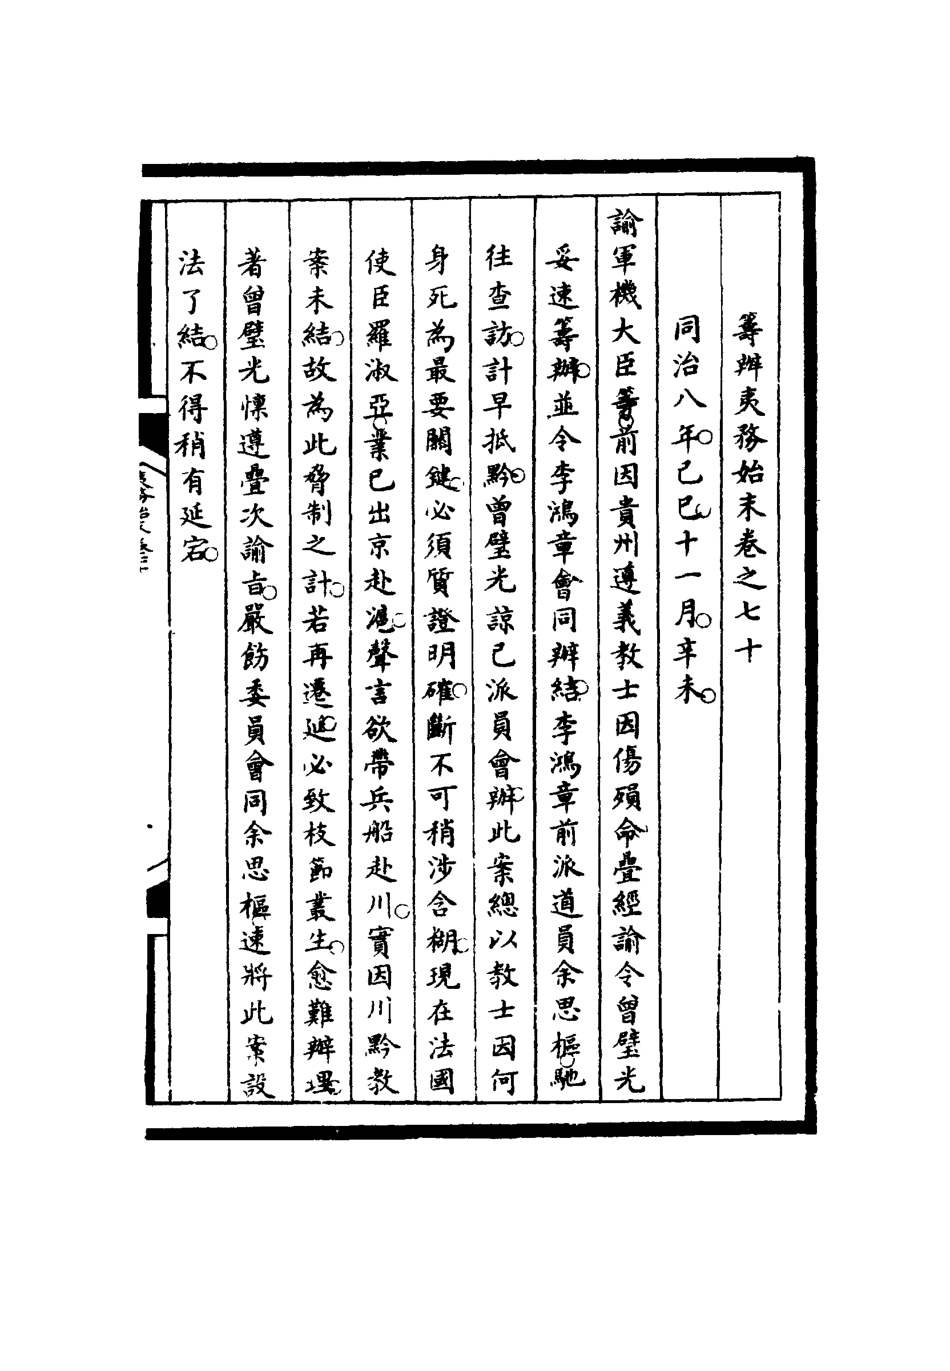 籌辦夷務始末卷之七十
同治八年。己巳。十一月。辛未。
諭軍機大臣等。前因貴州遵義教士因傷殞命。疊經諭令曾璧光
妥速籌辦。並令李鴻章會同辦結。李鴻章前派道員余思樞。馳
往查訪。計早抵黔。曾璧光諒已派員會辦。此案總以教士因何
身死為最要關鍵。必須質證明確。斷不可稍涉含糊。現在法國
使臣羅淑亞。業已出京赴滬。聲言欲帶兵船赴川。實因川黔教
案未結。故為此脅制之計。若再遷延。必致枝節叢生。愈難辦理。
著曾璧光懍遵疊次諭旨。嚴飭委員會同余思樞。速將此案設
法了結。不得稍有延宕。